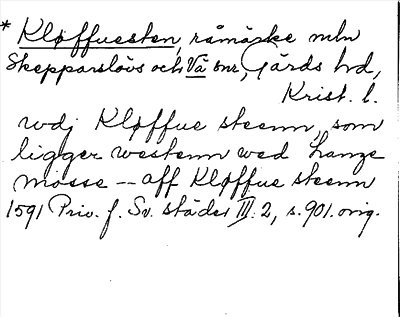 * Kløffuesten, råmärke mln
Skepparslövs och Vä snr, Gärds hd,
Krist. l.
wdj Kløffue steenn, som
ligger westenn wed Lange
mosse -- aff Kløffue steenn
1591 Priv. f. Sv. städer III: 2, s. 901. orig.